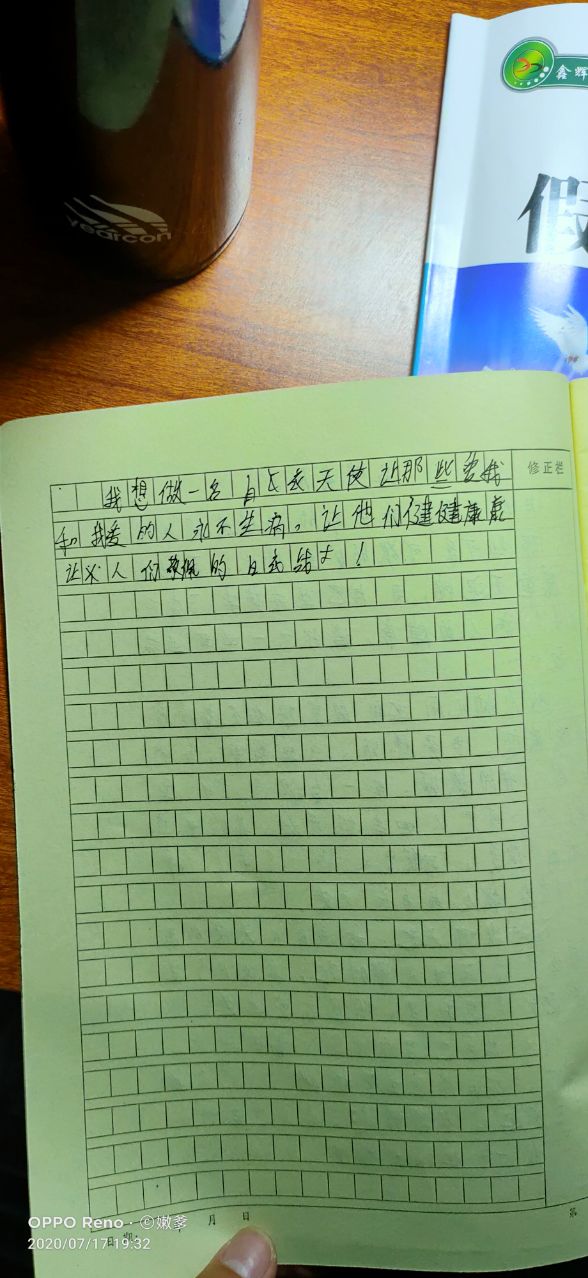 yearcon
鑫辉
假
修正栏
我想做一名白衣天使让那些爱我
和我爱的人永不生病。让他们健健康康
让人们敬佩的白衣天士!
月 日
日期:
第
OPPO Reno · ©嫩爹
2020/07/17 19:32